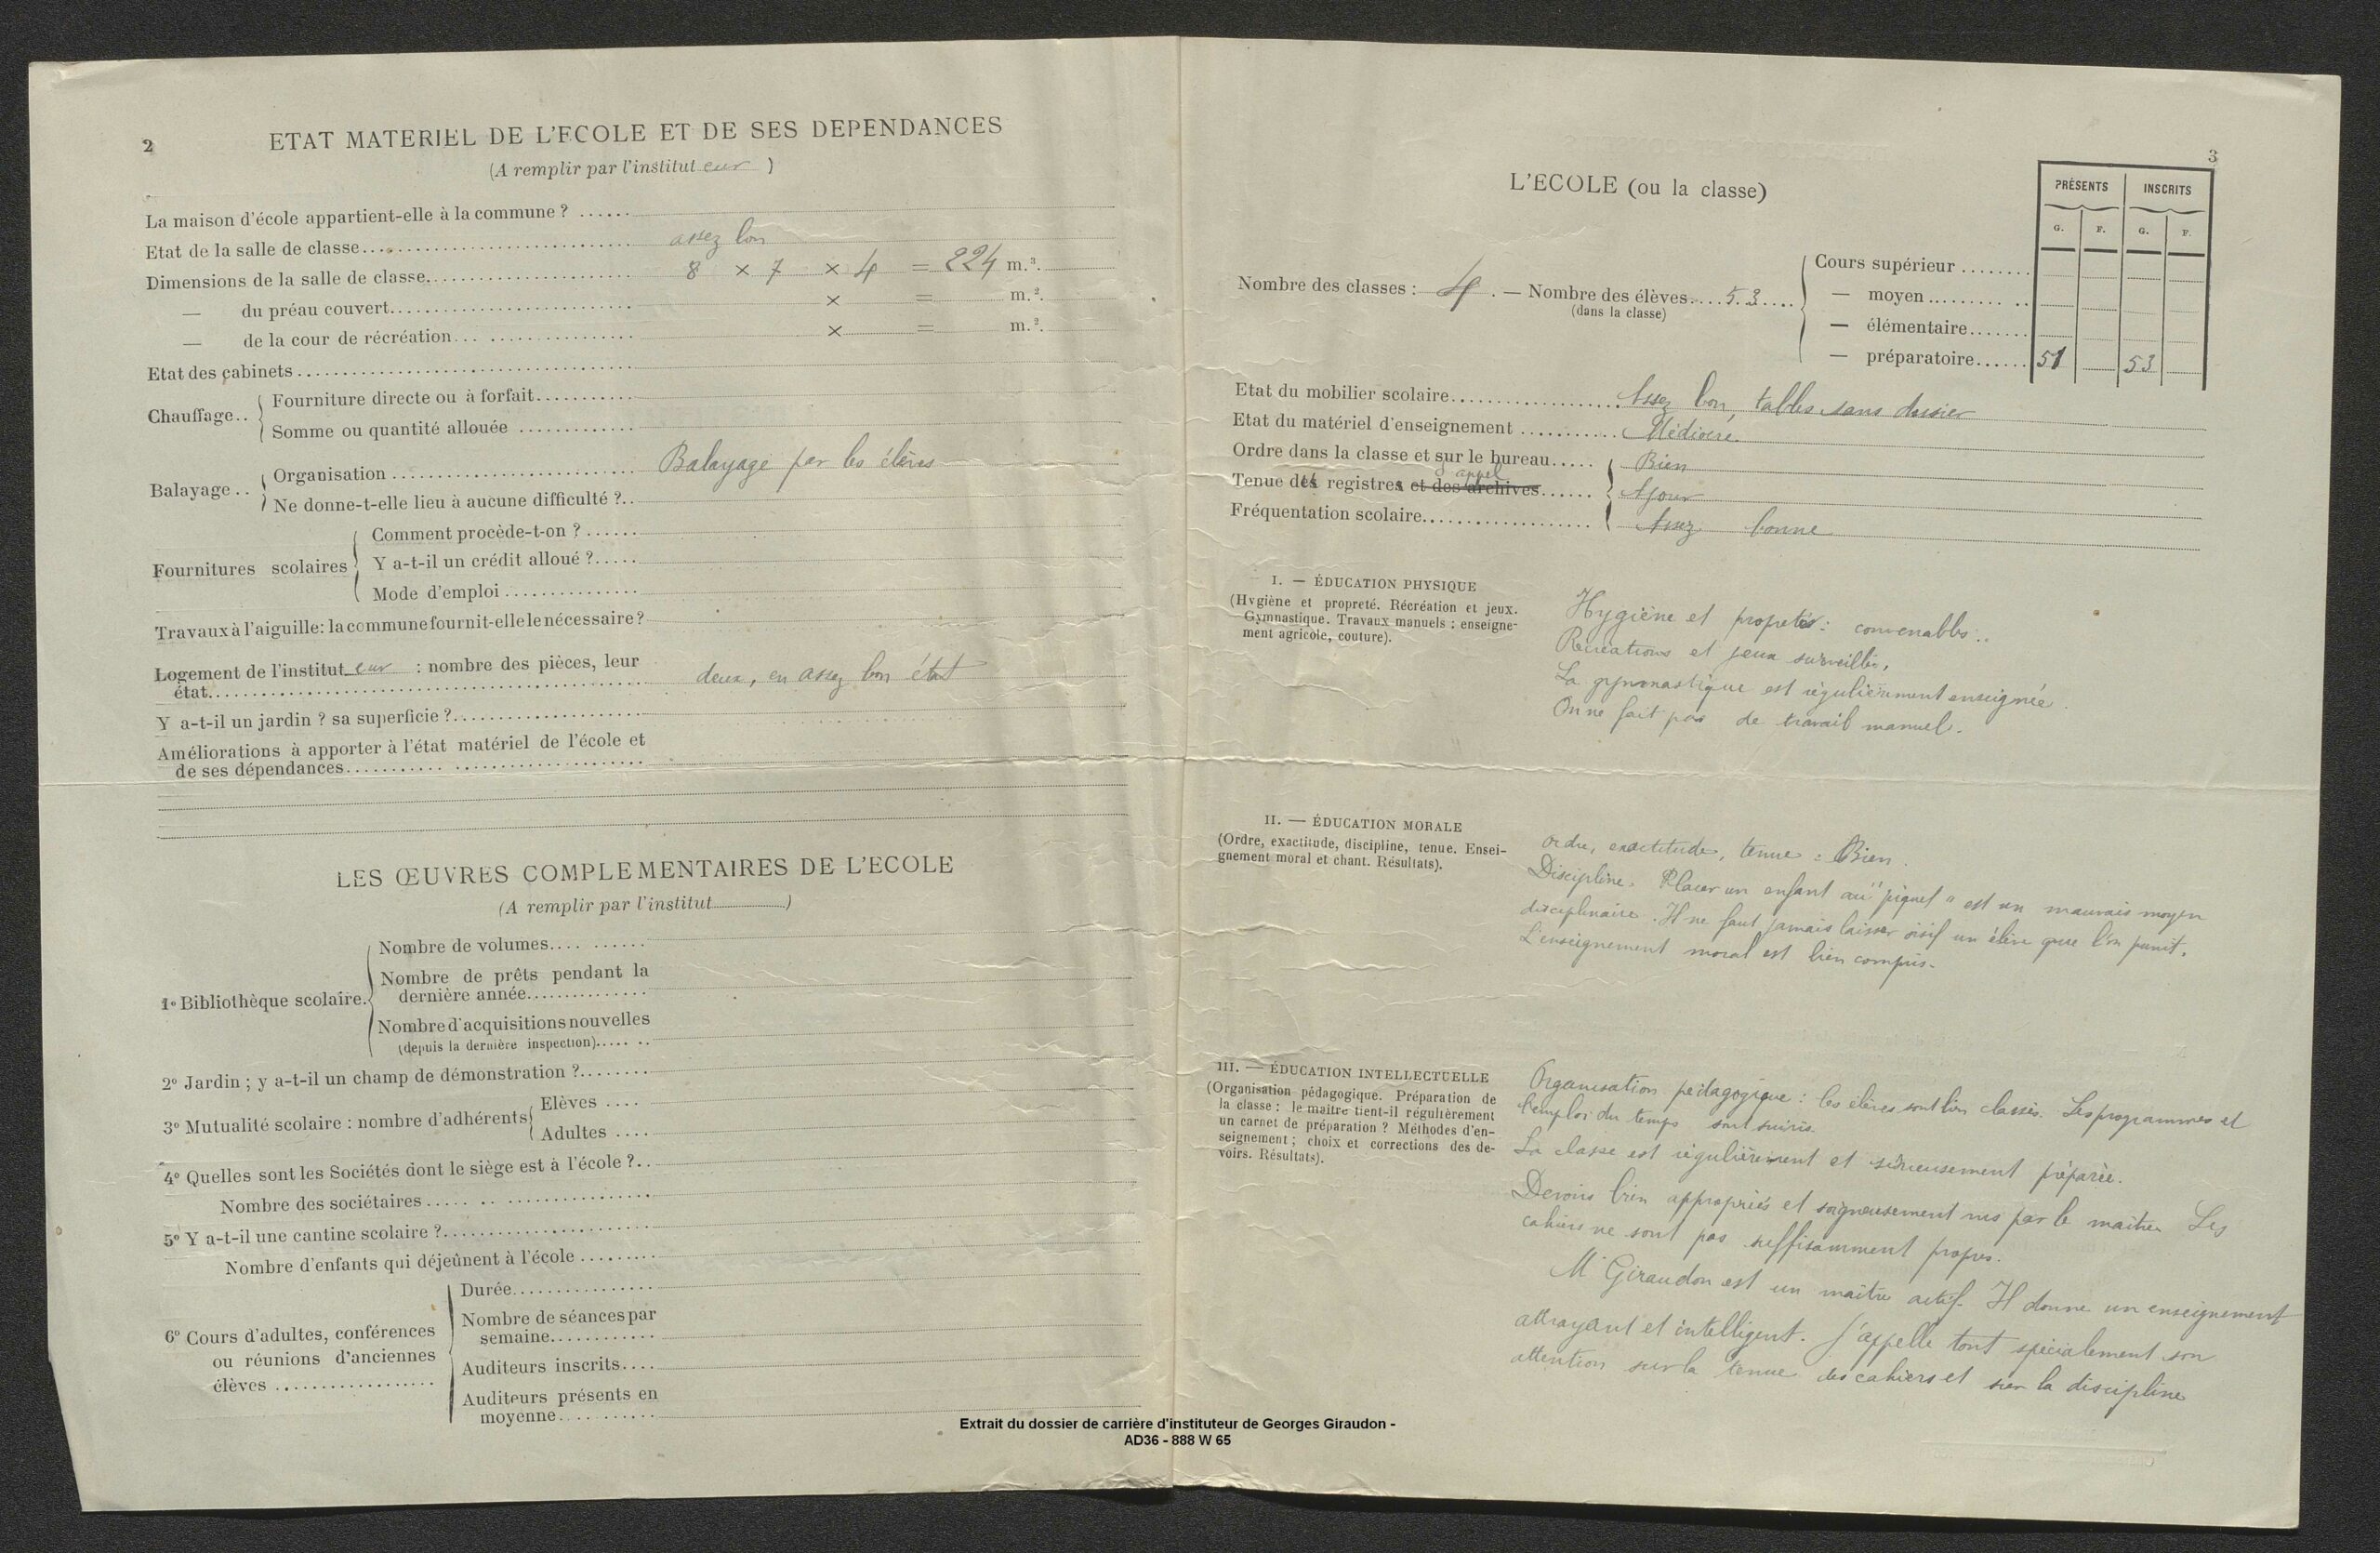 2
ETAT MATERIEL DE L'ECOLE ET DE SES DEPENDANCES
(A remplir par l'institut eur )
La maison d'école appartient-elle à la commune ? ......
Etat de la salle de classe.... assez bon
Dimensions de la salle de classe.... 8 × 7 × 4 = 224 m.³.
— du préau couvert.... × = m.².
— de la cour de récréation... × = m.².
Etat des cabinets....
Chauffage..
Fourniture directe ou à forfait....
Somme ou quantité allouée ....
Balayage..
Organisation .... Balayage par les élèves
Ne donne-t-elle lieu à aucune difficulté ?..
Fournitures scolaires
Comment procède-t-on ? ......
Y a-t-il un crédit alloué ?.....
Mode d'emploi ....
Travaux à l'aiguille : la commune fournit-elle le nécessaire ?
Logement de l'institut eur : nombre des pièces, leur
état.... deux, en assez bon état
Y a-t-il un jardin ? sa superficie ?....
Améliorations à apporter à l'état matériel de l'école et
de ses dépendances....
LES ŒUVRES COMPLEMENTAIRES DE L'ECOLE
(A remplir par l'institut )
1º Bibliothèque scolaire.
Nombre de volumes....
Nombre de prêts pendant la
dernière année....
Nombre d'acquisitions nouvelles
(depuis la dernière inspection)....
2º Jardin ; y a-t-il un champ de démonstration ?....
3º Mutualité scolaire : nombre d'adhérents
Elèves ....
Adultes ....
4º Quelles sont les Sociétés dont le siège est à l'école ?..
Nombre des sociétaires ....
5º Y a-t-il une cantine scolaire ?....
Nombre d'enfants qui déjeûnent à l'école ....
6º Cours d'adultes, conférences
ou réunions d'anciennes
élèves ....
Durée....
Nombre de séances par
semaine....
Auditeurs inscrits....
Auditeurs présents en
moyenne....
3
L'ECOLE (ou la classe)
PRÉSENTS INSCRITS
G. F. G. F.
Nombre des classes : 4 . — Nombre des élèves.... 53 ....
(dans la classe)
Cours supérieur ........
— moyen ........
— élémentaire.......
— préparatoire...... 51 53
Etat du mobilier scolaire.... Assez bon, tables sans dossier
Etat du matériel d'enseignement .... Médiocre.
Ordre dans la classe et sur le bureau..... Bien
appel
Tenue des registres et des archives...... A jour
Fréquentation scolaire.... Assez bonne
I. — ÉDUCATION PHYSIQUE
(Hygiène et propreté. Récréation et jeux.
Gymnastique. Travaux manuels : enseigne-
ment agricole, couture).
Hygiène et propreté : convenables.
Récréations et jeux surveillés,
La gymnastique est régulièrement enseignée.
On ne fait pas de travail manuel.
II. — ÉDUCATION MORALE
(Ordre, exactitude, discipline, tenue. Ensei-
gnement moral et chant. Résultats).
Ordre, exactitude, tenue : Bien.
Discipline. Placer un enfant au "piquet" est un mauvais moyen
disciplinaire. Il ne faut jamais laisser oisif un élève que l'on punit.
L'enseignement moral est bien compris.
III. — ÉDUCATION INTELLECTUELLE
(Organisation pédagogique. Préparation de
la classe : le maître tient-il régulièrement
un carnet de préparation ? Méthodes d'en-
seignement ; choix et corrections des de-
voirs. Résultats).
Organisation pédagogique : les élèves sont bien classés. Les programmes et
l'emploi du temps sont suivis.
La classe est régulièrement et sérieusement préparée.
Devoirs bien appropriés et soigneusement vus par le maître. Les
cahiers ne sont pas suffisamment propres.
M. Giraudon est un maître actif. Il donne un enseignement
attrayant et intelligent. J'appelle tout spécialement son
attention sur la tenue des cahiers et sur la discipline
Extrait du dossier de carrière d'instituteur de Georges Giraudon -
AD36 - 888 W 65